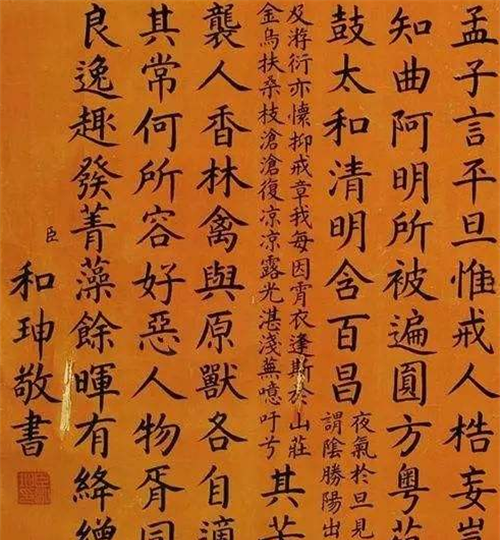 孟子言平旦惟戒人梏妄豈
知曲阿明所被遍圓方粵
鼓太和清明含百昌
夜氣於旦見
謂陰勝陽出
及游衍亦懷抑戒章我每因宵衣逢斯於山莊
金烏扶桑枝滄滄復凉凉露光湛淺蕪噫吁兮
其
襲人香林禽與原獸各自適
其常何所容好惡人物胥同
良逸趣發菁藻餘暉有絳繒
臣和珅敬書